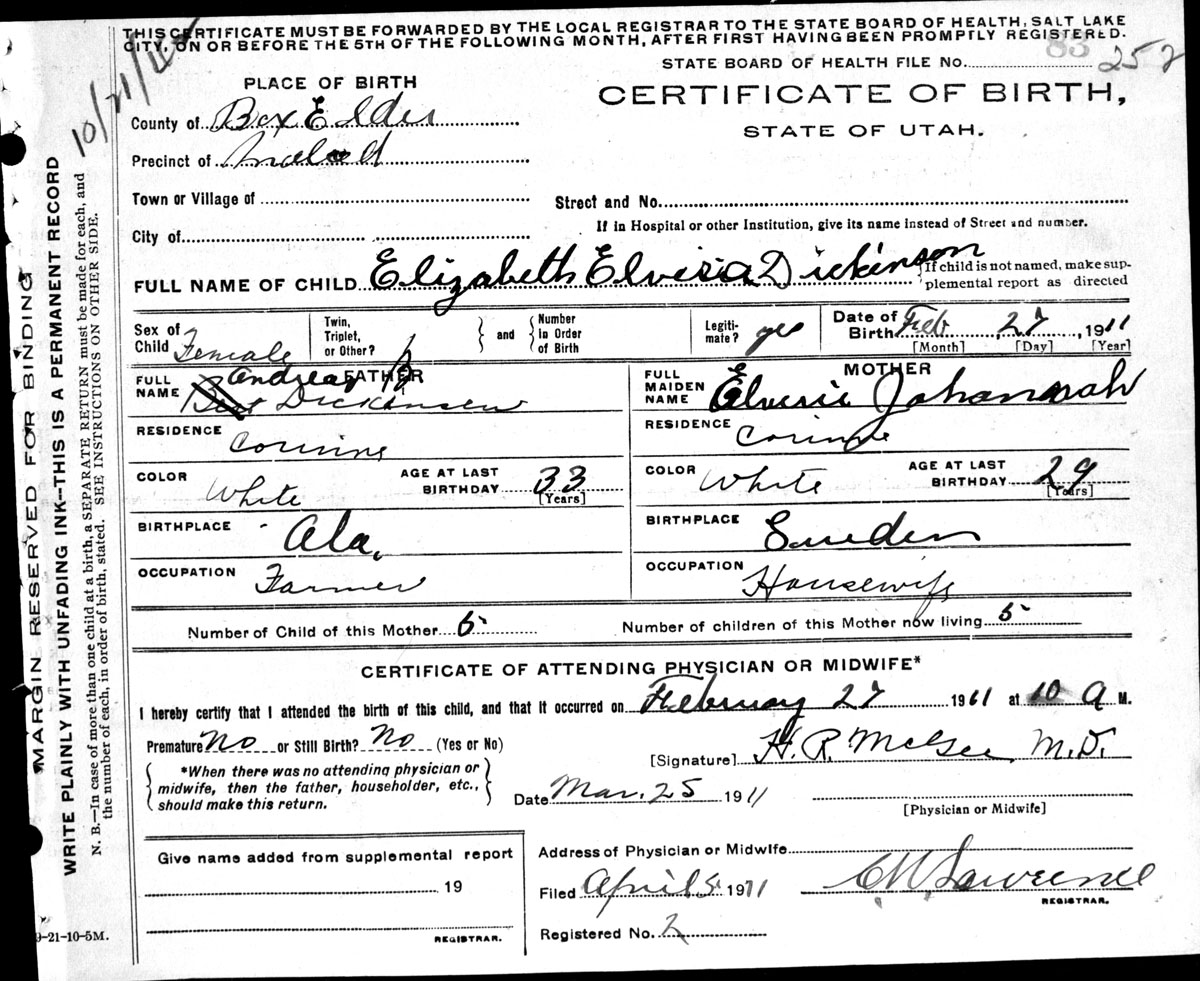 THIS CERTIFICATE MUST BE FORWARDED BY THE LOCAL REGISTRAR TO THE STATE BOARD OF HEALTH, SALT LAKE
CITY, ON OR BEFORE THE 5TH OF THE FOLLOWING MONTH, AFTER FIRST HAVING BEEN PROMPTLY REGISTERED.
83
STATE BOARD OF HEALTH FILE NO. 252
PLACE OF BIRTH
CERTIFICATE OF BIRTH,
STATE OF UTAH.
County of Box Elder
Precinct of
Town or Village of
Street and No.
City of
If in Hospital or other Institution, give its name instead of Street and number.
FULL NAME OF CHILD Elizabeth Elvesia Dickinson
If child is not named, make sup-
plemental report as directed
Sex of Child Female
Twin, Triplet, or Other?
and
Number in Order of Birth
Legiti-mate? yes
Date of Birth Feb 27, 1911
[Month] [Day] [Year]
FATHER
FULL NAME Andrew Dickinsen
RESIDENCE Corinne
COLOR White
AGE AT LAST BIRTHDAY 33
[Years]
BIRTHPLACE Ala.
OCCUPATION Farmer
MOTHER
FULL MAIDEN NAME Elvesie Johannah
RESIDENCE Corinne
COLOR White
AGE AT LAST BIRTHDAY 29
[Years]
BIRTHPLACE Sweden
OCCUPATION Housewife
Number of Child of this Mother 5
Number of children of this Mother now living 5
CERTIFICATE OF ATTENDING PHYSICIAN OR MIDWIFE*
I hereby certify that I attended the birth of this child, and that it occurred on February 27 1911 at 10 A M.
Premature No or Still Birth? No (Yes or No)
[Signature] H. R. McGee M.D.
*When there was no attending physician or
midwife, then the father, householder, etc.,
should make this return.
Date Mar. 25 1911
[Physician or Midwife]
Give name added from supplemental report
19
REGISTRAR.
Address of Physician or Midwife
Filed April 5 1911
C W Lawrence
REGISTRAR.
Registered No. 2
9-21-10-5M.
MARGIN RESERVED FOR BINDING
WRITE PLAINLY WITH UNFADING INK—THIS IS A PERMANENT RECORD
N. B.—In case of more than one child at a birth, a SEPARATE RETURN must be made for each, and
the number of each, in order of birth, stated. SEE INSTRUCTIONS ON OTHER SIDE.